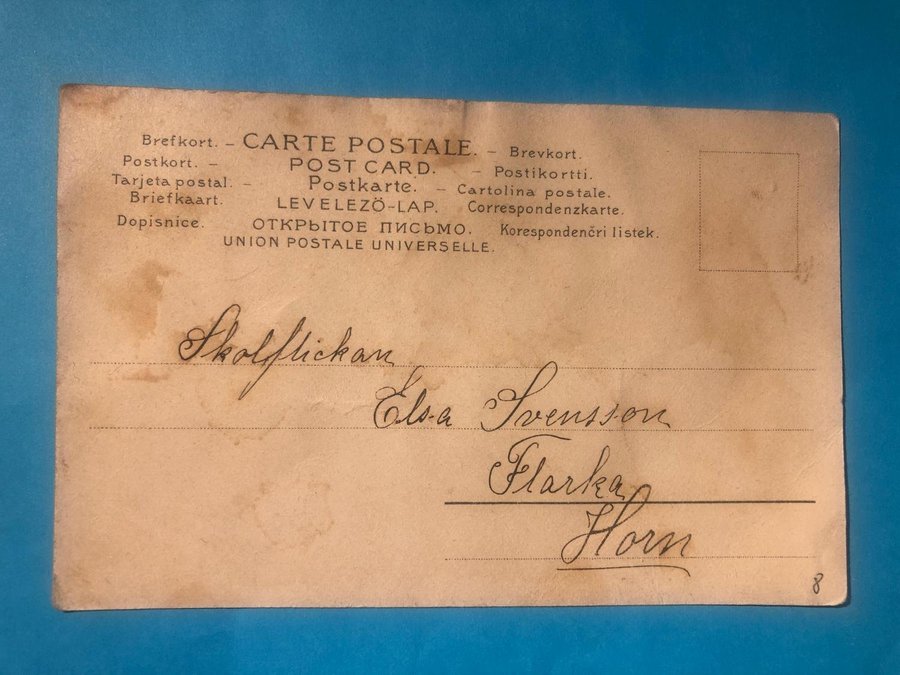 Brefkort. – CARTE POSTALE. – Brevkort.
Postkort. – POST CARD. – Postikortti.
Tarjeta postal. – Postkarte. – Cartolina postale.
Briefkaart. LEVELEZÖ-LAP. Correspondenzkarte.
Dopisnice. ОТКРЫТОЕ ПИСЬМО. Korespondenčri listek.
UNION POSTALE UNIVERSELLE.
Skolflickan
Elsa Svensson
Flarka
Horn
8